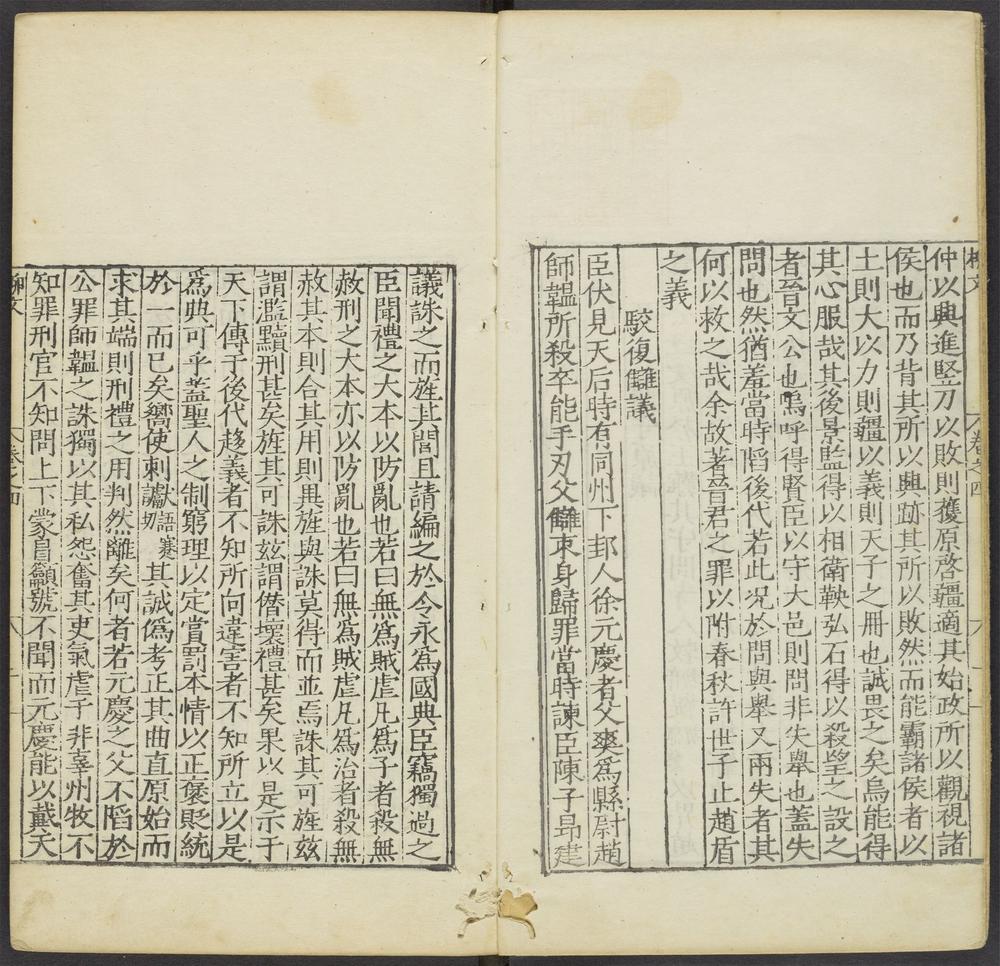 柳文 卷之四 六
仲以興進豎刀以敗則獲原啓疆適其始政所以觀視諸
侯也而乃背其所以興跡其所以敗然而能霸諸侯者以
土則大以力則疆以義則天子之冊也誠畏之矣烏能得
其心服哉其後景監得以相衛鞅弘石得以殺望之設之
者晉文公也嗚呼得賢臣以守大邑則問非失舉也蓋失
問也然猶羞當時陷後代若此況於問與舉又兩失者其
何以救之哉余故著晉君之罪以附春秋許世子止趙盾
之義
駮復讎議
臣伏見天后時有同州下邽人徐元慶者父爽爲縣尉趙
師韞所殺卒能手刃父讎束身歸罪當時諫臣陳子昂建
議誅之而旌其閭且請編之於令永爲國典臣竊獨過之
臣聞禮之大本以防亂也若曰無爲賊虐凡爲子者殺無
赦刑之大本亦以防亂也若曰無爲賊虐凡爲治者殺無
赦其本則合其用則異旌與誅莫得而並焉誅其可旌茲
謂濫黷刑甚矣旌其可誅茲謂僭壞禮甚矣果以是示于
天下傳于後代趍義者不知所向違害者不知所立以是
爲典可乎蓋聖人之制窮理以定賞罰本情以正褒貶統
於一而已矣嚮使刺讞語蹇切其誠僞考正其曲直原始而
求其端則刑禮之用判然離矣何者若元慶之父不陷於
公罪師韞之誅獨以其私怨奮其吏氣虐于非辜州牧不
知罪刑官不知問上下蒙冒籲號不聞而元慶能以戴天
柳文 卷之四